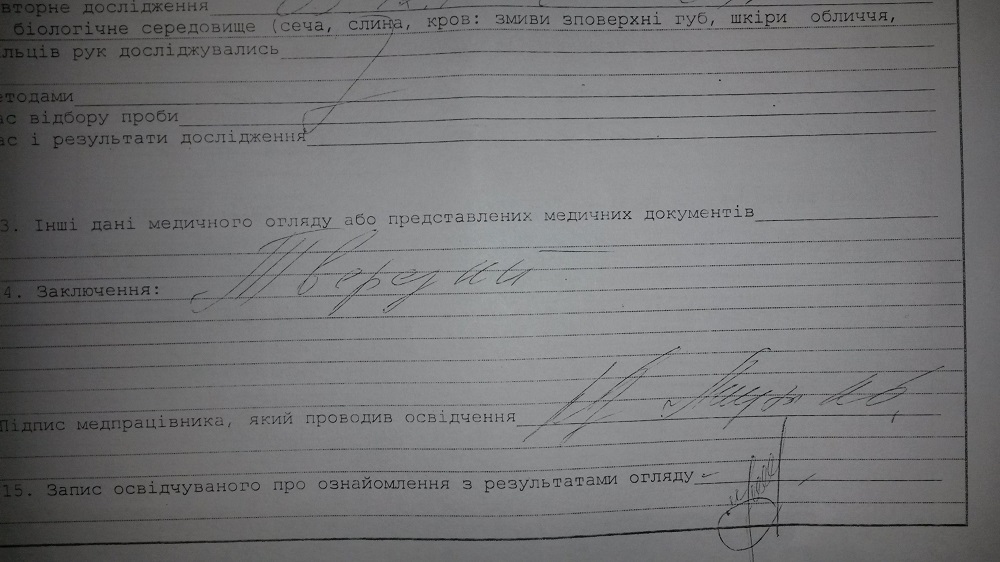 вторне дослідження
біологічне середовище (сеча, слина, кров: змиви зповерхні губ, шкіри обличчя,
льців рук досліджувались
етодами
ас відбору проби
ас і результати дослідження
3. Інші дані медичного огляду або представлених медичних документів
4. Заключення: Тверезий
Підпис медпрацівника, який проводив освідчення
15. Запис освідчуваного про ознайомлення з результатами огляду